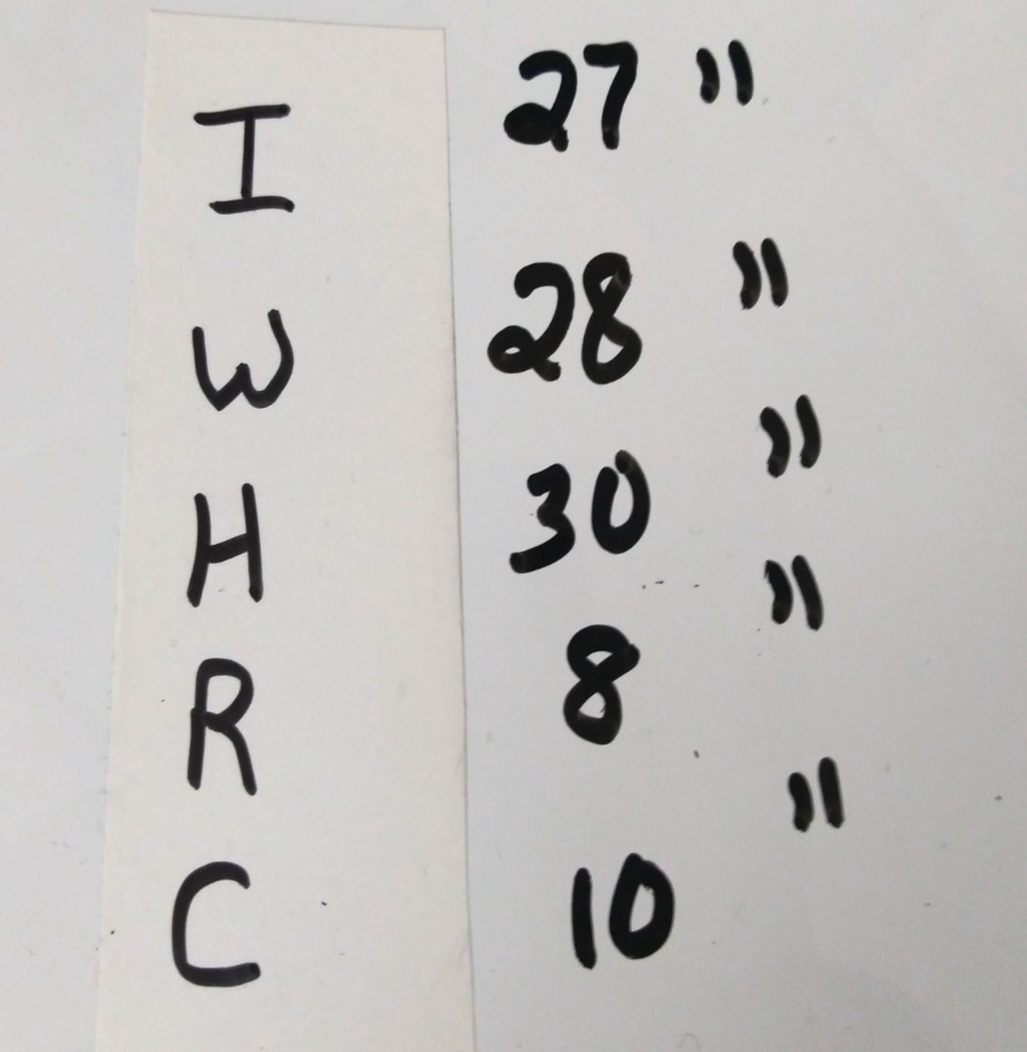 I 27 "
W 28 "
H 30 "
R 8 "
C 10 "